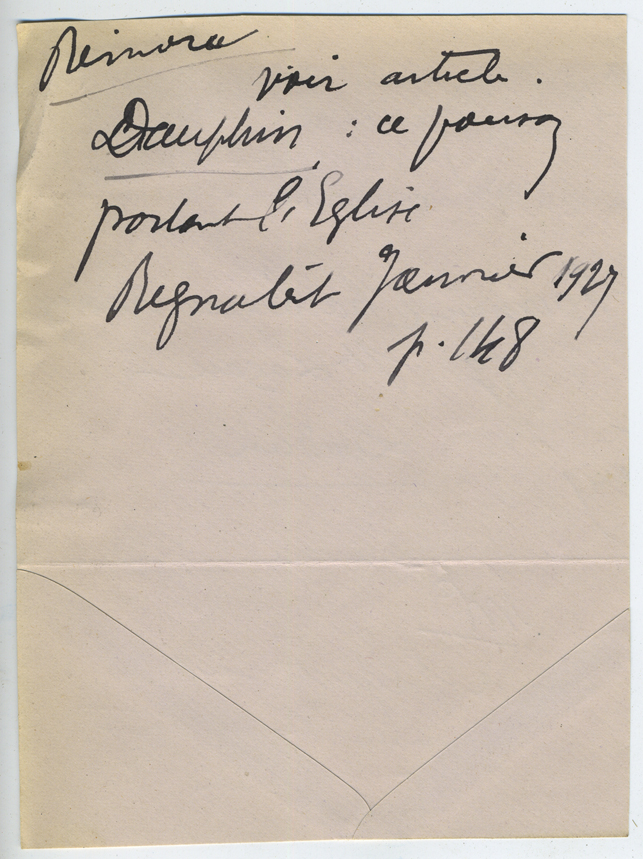 Remora
voir article.
Dauphin : ce poisson
portant l'Eglise
Regnabit Janvier 1927
p. 148